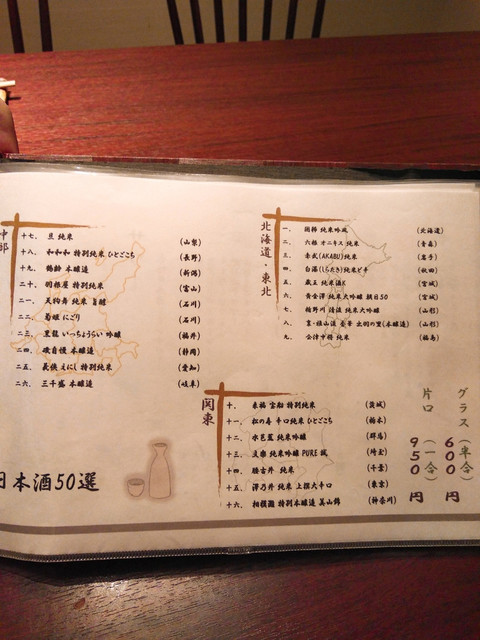 北海道・東北
一、 國稀 純米吟風 (北海道)
二、 六根 オニキス 純米 (青森)
三、 赤武(AKABU) 純米 (岩手)
四、 白瀑(しらたき) 純米ピキ (秋田)
五、 蔵王 純米酒K (宮城)
六、 黄金澤 純米大吟醸 (宮城)
七、 楯野川 清流 純米大吟醸 (山形)
八、 出羽の里(本醸造) (山形)
九、 会津中将 純米 (福島)
関東
十、 来福 宝船 特別純米 (茨城)
十一、 松の寿 辛口純米 ひとごこち (栃木)
十二、 水芭蕉 純米吟醸 (群馬)
十三、 文楽 純米吟醸 PURE (埼玉)
十四、 腰古井 純米 (千葉)
十五、 澤乃井 純米 上撰大辛口 (東京)
十六、 相模灘 特別本醸造 美山錦 (神奈川)
グラス(半合) 600円
片口(一合) 950円
中部
十七、 旦 純米 (山梨)
十八、 和和和 特別純米 ひとごこち (長野)
十九、 鶴齢 本醸造 (新潟)
二十、 羽根屋 特別純米 (富山)
二一、 天狗舞 純米 旨醇 (石川)
二二、 菊姫 にごり (石川)
二三、 黒龍 いっちょうらい 吟醸 (福井)
二四、 磯自慢 本醸造 (静岡)
二五、 義侠 えにし 特別純米 (愛知)
二六、 三千盛 本醸造 (岐阜)
日本酒50選